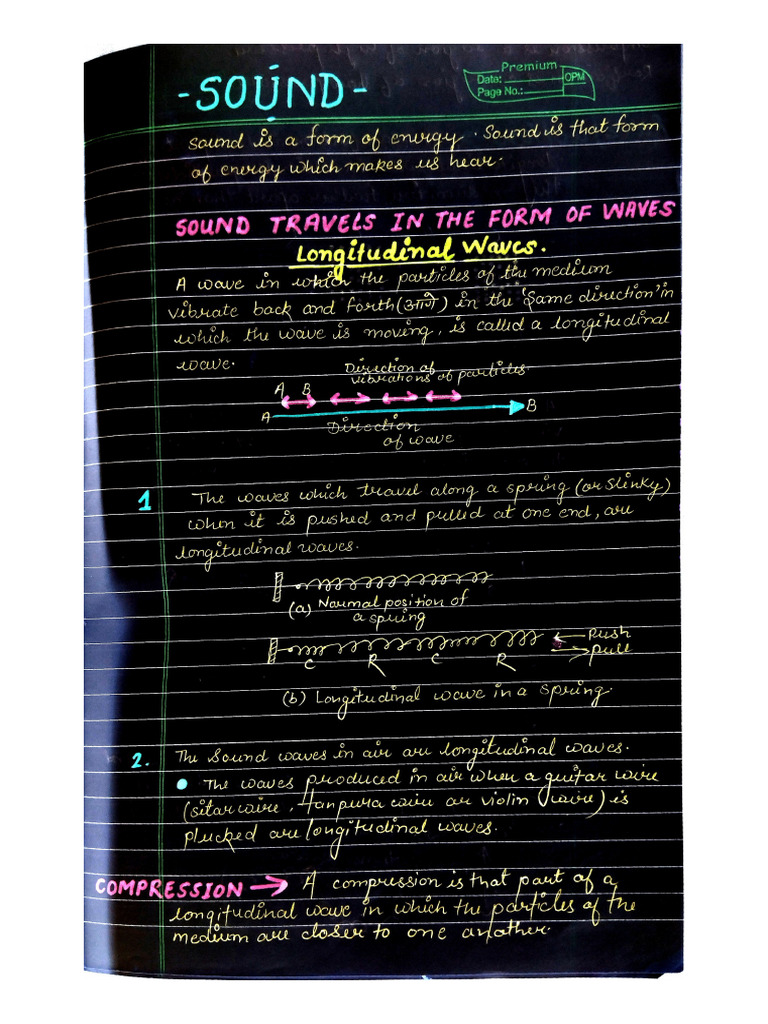 -SOUND-
Premium
Date: OPM
Page No.:
Sound is a form of energy. Sound is that form
of energy which makes us hear.
SOUND TRAVELS IN THE FORM OF WAVES
Longitudinal Waves.
A wave in which the particles of the medium
vibrate back and forth (आगे) in the 'Same direction' in
which the wave is moving, is called a longitudinal
wave.
Direction of
vibrations of particles.
A B
A B
Direction
of wave
1 The waves which travel along a spring (or Slinky)
when it is pushed and pulled at one end, are
longitudinal waves.
(a) Normal position of
a spring
Push
pull
C R C R
(b) Longitudinal wave in a spring.
2. The Sound waves in air are longitudinal waves.
• The waves produced in air when a guitar wire
(sitar wire, Tanpura wire or violin wire) is
plucked are longitudinal waves.
COMPRESSION → A compression is that part of a
longitudinal wave in which the particles of the
medium are closer to one another.